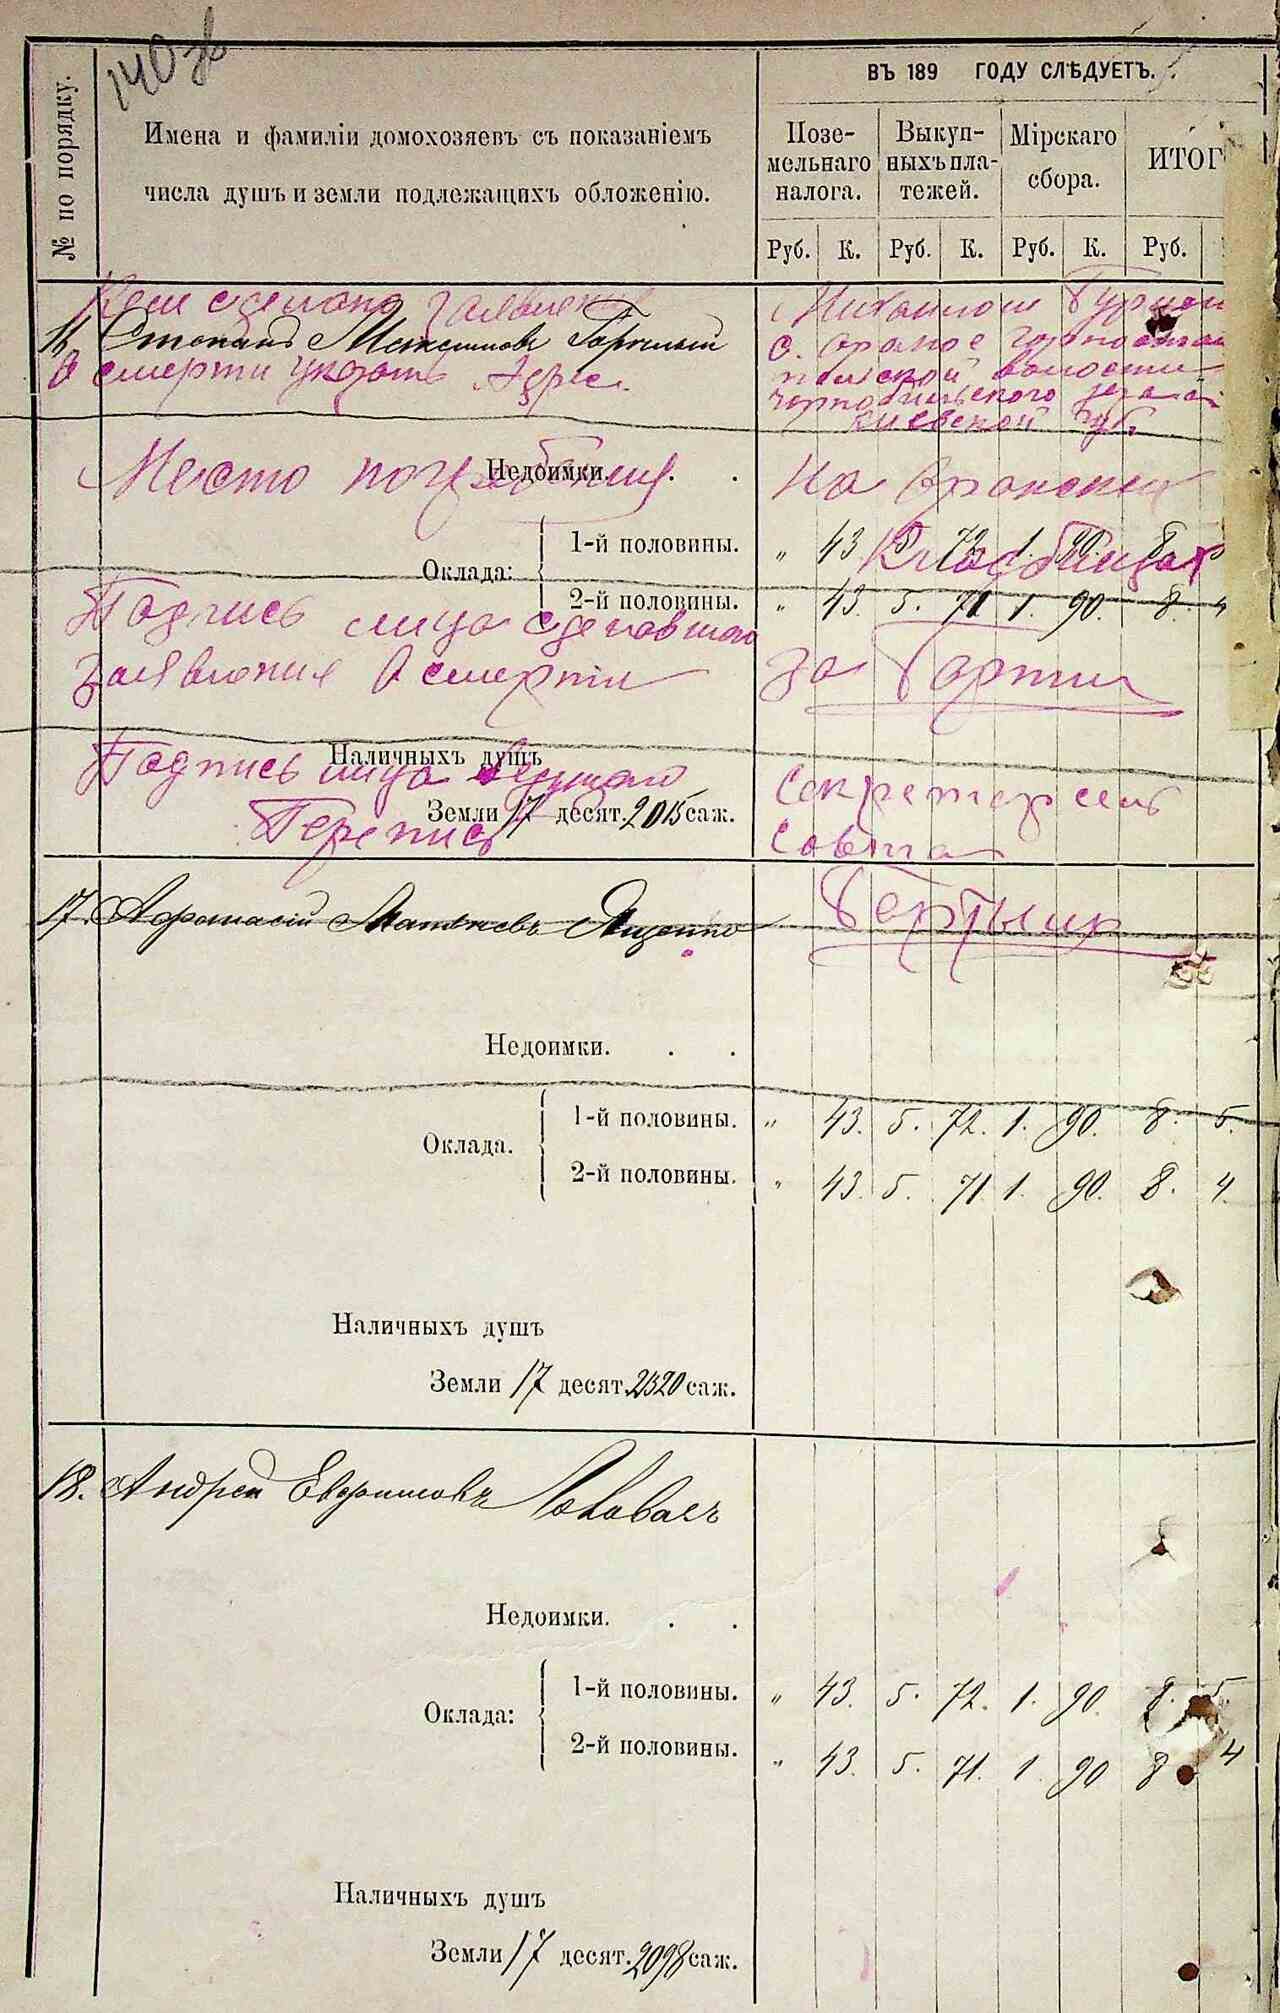 140 зв
№ по порядку.
Имена и фамиліи домохозяевъ съ показаніемъ
числа душъ и земли подлежащихъ обложенію.
ВЪ 189 ГОДУ СЛѢДУЕТЪ.
Позе-
мельнаго
налога.
Выкуп-
ныхъ пла-
тежей.
Мірскаго
сбора.
ИТОГ
Руб. К. Руб. К. Руб. К. Руб.
Кем сделано
Михаилом
Степанъ Максимовъ
с.
о смерти указать Адрес.
волости
чернобильского
киевской губ.
Место погребения
На
Недоимки. . .
Кладбищах
Оклада:
1-й половины. „ 43 5 72 1. 90. 8 5
2-й половины. „ 43. 5. 71 1. 90. 8. 4
Подпись лица сделавшаго
заявления о смерти
за
Наличныхъ душъ
Подпись лица
Секретарь сель
Земли 17 десят. 2015 саж.
Перепись
Совета
17. Афанасій Ященко
Недоимки. . .
Оклада.
1-й половины. „ 43. 5. 72. 1. 90. 8. 5.
2-й половины. „ 43. 5. 71 1. 90. 8. 4.
Наличныхъ душъ
Земли 17 десят. 2320 саж.
18. Андрей Евфимовъ
Недоимки. . .
Оклада:
1-й половины. „ 43. 5. 72. 1. 90. 8. 5.
2-й половины. „ 43. 5. 71. 1. 90 8 4
Наличныхъ душъ
Земли 17 десят. 2098 саж.